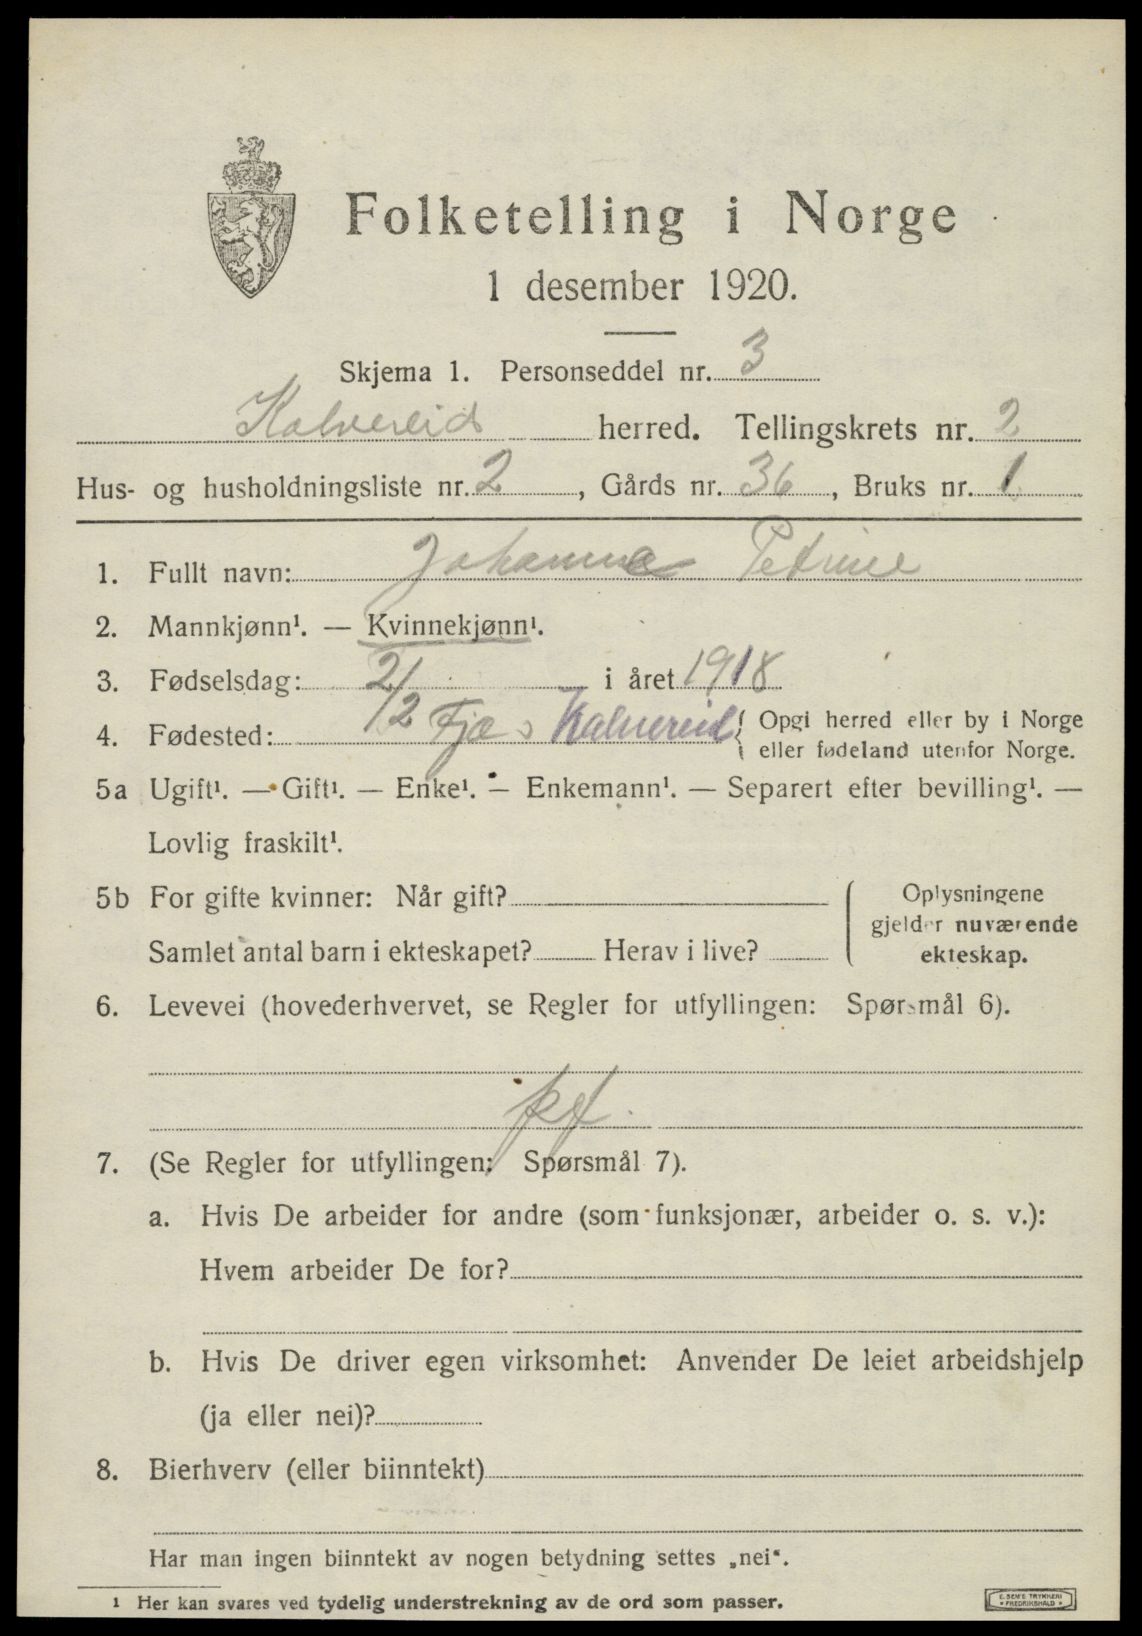 Folketelling i Norge
1 desember 1920.
Skjema 1. Personseddel nr. 3
Kalvereid herred. Tellingskrets nr. 2
Hus- og husholdningsliste nr. 2, Gårds nr. 36, Bruks nr. 1
1. Fullt navn: Johanna Petrine
2. Mannkjønn¹. — Kvinnekjønn¹.
3. Fødselsdag: 2/2 i året 1918
4. Fødested: Kalvereid { Opgi herred eller by i Norge
eller fødeland utenfor Norge.
5a Ugift¹. — Gift¹. — Enke¹. — Enkemann¹. — Separert efter bevilling¹. —
Lovlig fraskilt¹.
5b For gifte kvinner: Når gift? { Oplysningene
gjelder nuværende
Samlet antal barn i ekteskapet? Herav i live? ekteskap.
6. Levevei (hovederhvervet, se Regler for utfyllingen: Spørsmål 6).
7. (Se Regler for utfyllingen: Spørsmål 7).
a. Hvis De arbeider for andre (som funksjonær, arbeider o. s. v.):
Hvem arbeider De for?
b. Hvis De driver egen virksomhet: Anvender De leiet arbeidshjelp
(ja eller nei)?
8. Bierhverv (eller biinntekt)
Har man ingen biinntekt av nogen betydning settes „nei“.
1 Her kan svares ved tydelig understrekning av de ord som passer.
E. SEM'S TRYKKERI
FREDRIKSHALD